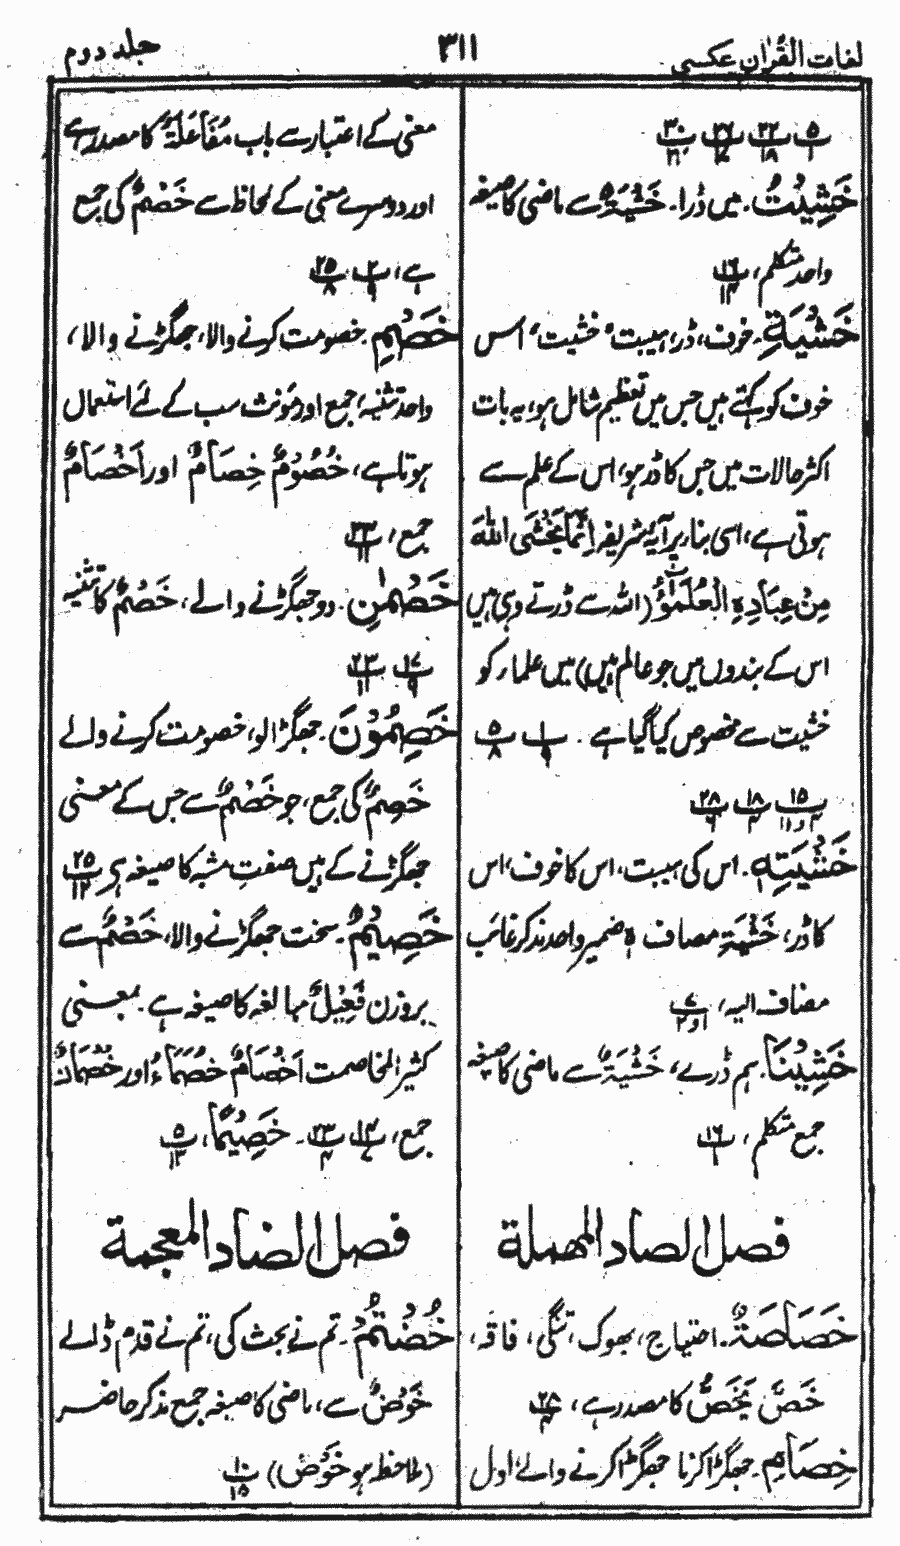 لغات القرآن عکسی ۳۱۱ جلد دوم
خَشِیْتُ۔ میں ڈرا۔ خَشْیَۃٌ سے ماضی کا صیغہ
واحد متکلم،
خَشْیَۃِ۔ خوف، ڈر، ہیبت، خشیت، اس
خوف کو کہتے ہیں جس میں تعظیم شامل ہو، یہ بات
اکثر حالات میں جس کا ڈر ہو، اس کے علم سے
ہوتی ہے، اسی بنا پر آیۂ شریفہ اِنَّمَا یَخْشَی اللّٰہَ
مِنْ عِبَادِہِ الْعُلَمٰؤُا (اللہ سے ڈرتے وہی ہیں
اس کے بندوں میں جو عالم ہیں) میں علماء کو
خشیت سے مخصوص کیا گیا ہے۔
خَشْیَتِہٖ۔ اس کی ہیبت، اس کا خوف، اس
کا ڈر، خَشْیَۃِ مضاف ہٖ ضمیر واحد مذکر غائب
مضاف الیہ،
خَشِیْنَا۔ ہم ڈرے، خَشْیَۃٌ سے ماضی کا صیغہ
جمع متکلم،
فصل الصاد المہملۃ
خَصَاصَۃٌ۔ احتیاج، بھوک، تنگی، فاقہ،
خَصَّ یَخَصُّ کا مصدر ہے،
خِصَامِ۔ جھگڑا کرنا جھگڑا کرنے والے، اول
معنی کے اعتبار سے باب مُفَاعَلَۃٌ کا مصدر ہے
اور دوسرے معنی کے لحاظ سے خَصْمٌ کی جمع
ہے،
خَصْمٍ۔ خصومت کرنے والا، جھگڑنے والا،
واحد تثنیہ، جمع اور مؤنث سب کے لئے استعمال
ہوتا ہے، خُصُوْمٌ خِصَامٌ اور اَخْصَامٌ
جمع،
خَصْمٰنِ۔ دو جھگڑنے والے، خَصْمٌ کا تثنیہ
خَصِمُوْنَ۔ جھگڑالو، خصومت کرنے والے
خَصِمٌ کی جمع، جو خَصْمٌ سے جس کے معنی
جھگڑنے کے ہیں صفتِ مشبہ کا صیغہ ہے
خَصِیْمٌ۔ سخت جھگڑنے والا، خَصْمٌ سے
بروزن فَعِیْلٌ مبالغہ کا صیغہ ہے۔ بمعنی
کثیر المخاصمت اَخْصَامٌ خُصَمَاءُ اور خُصْمَانٌ
جمع، خَصِیْمًا،
فصل الضاد المعجمۃ
خُضْتُمْ۔ تم نے بحث کی، تم نے قدم ڈالے
خَوْضٌ سے، ماضی کا صیغہ جمع مذکر حاضر
(ملاحظہ ہو خَوْضٌ)